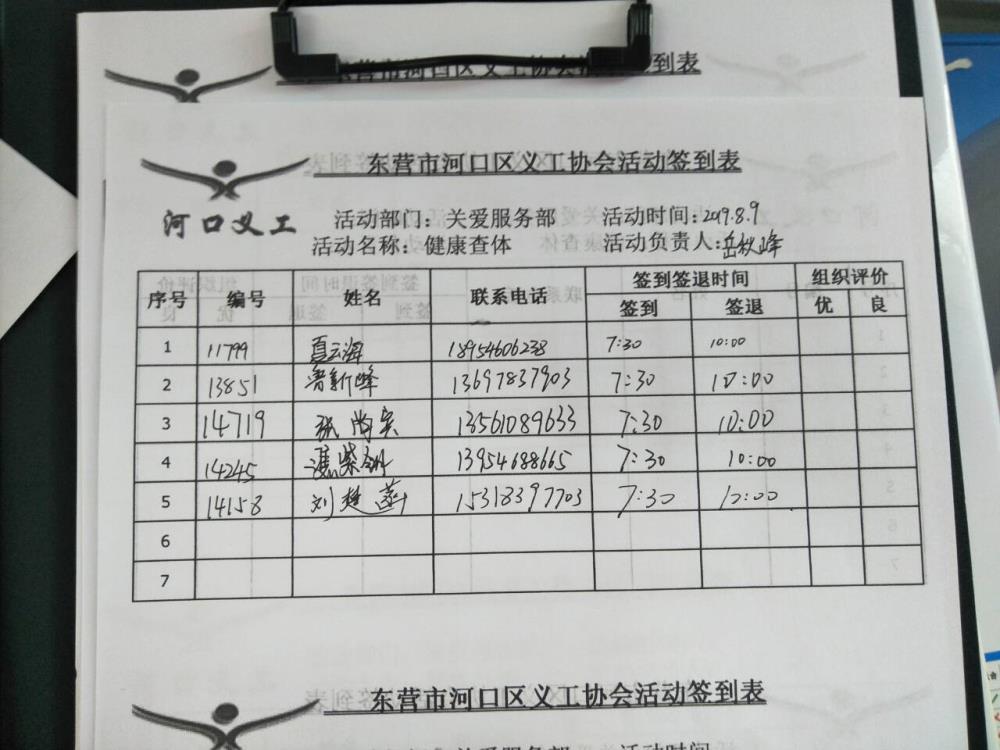 东营市河口区义工协会活动签到表
东营市河口区义工协会活动签到表
河口义工
活动部门：关爱服务部 活动时间：2019.8.9
活动名称：健康查体 活动负责人：岳秋峰
序号 编号 姓名 联系电话 签到签退时间 组织评价
签到 签退 优 良
1 11799 夏云海 18954606238 7:30 10:00
2 13851 新峰 13697837903 7:30 10:00
3 14719 张尚实 13561089633 7:30 10:00
4 14245 紫 13954688665 7:30 10:00
5 14158 刘楚菡 15318397703 7:30 10:00
6
7
东营市河口区义工协会活动签到表
关爱服务部 活动时间